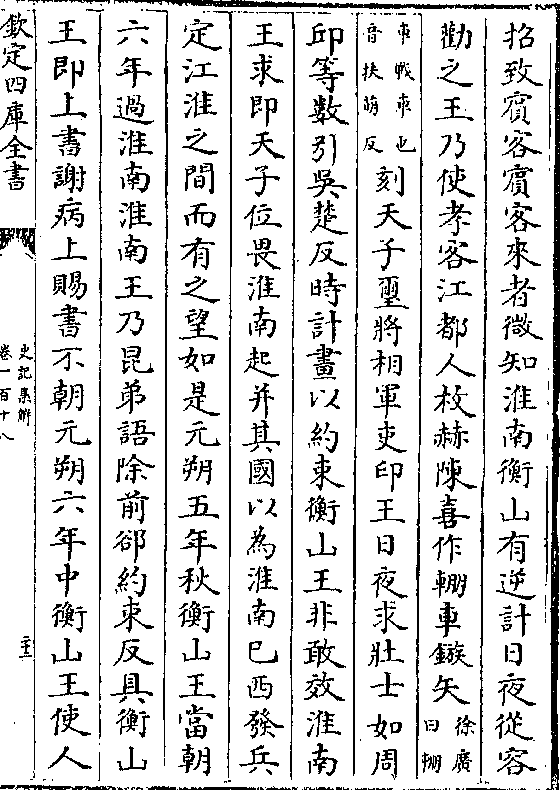 招致賓客賓客來者微知淮南衡山有逆計日夜從容
勸之王乃使孝客江都人枚赫陳喜作輣車鏃矢徐廣曰輣
車戰車也音扶萌反刻天子璽將相軍吏印王日夜求壯士如周
邱等數引吳楚反時計畫以約束衡山王非敢效淮南
王求即天子位畏淮南起并其國以為淮南已西發兵
定江淮之間而有之望如是元朔五年秋衡山王當朝
六年過淮南淮南王乃昆弟語除前郤約束反具衡山
王即上書謝病上賜書不朝元朔六年中衡山王使人
欽定四庫全書
史記集解
卷一百十八